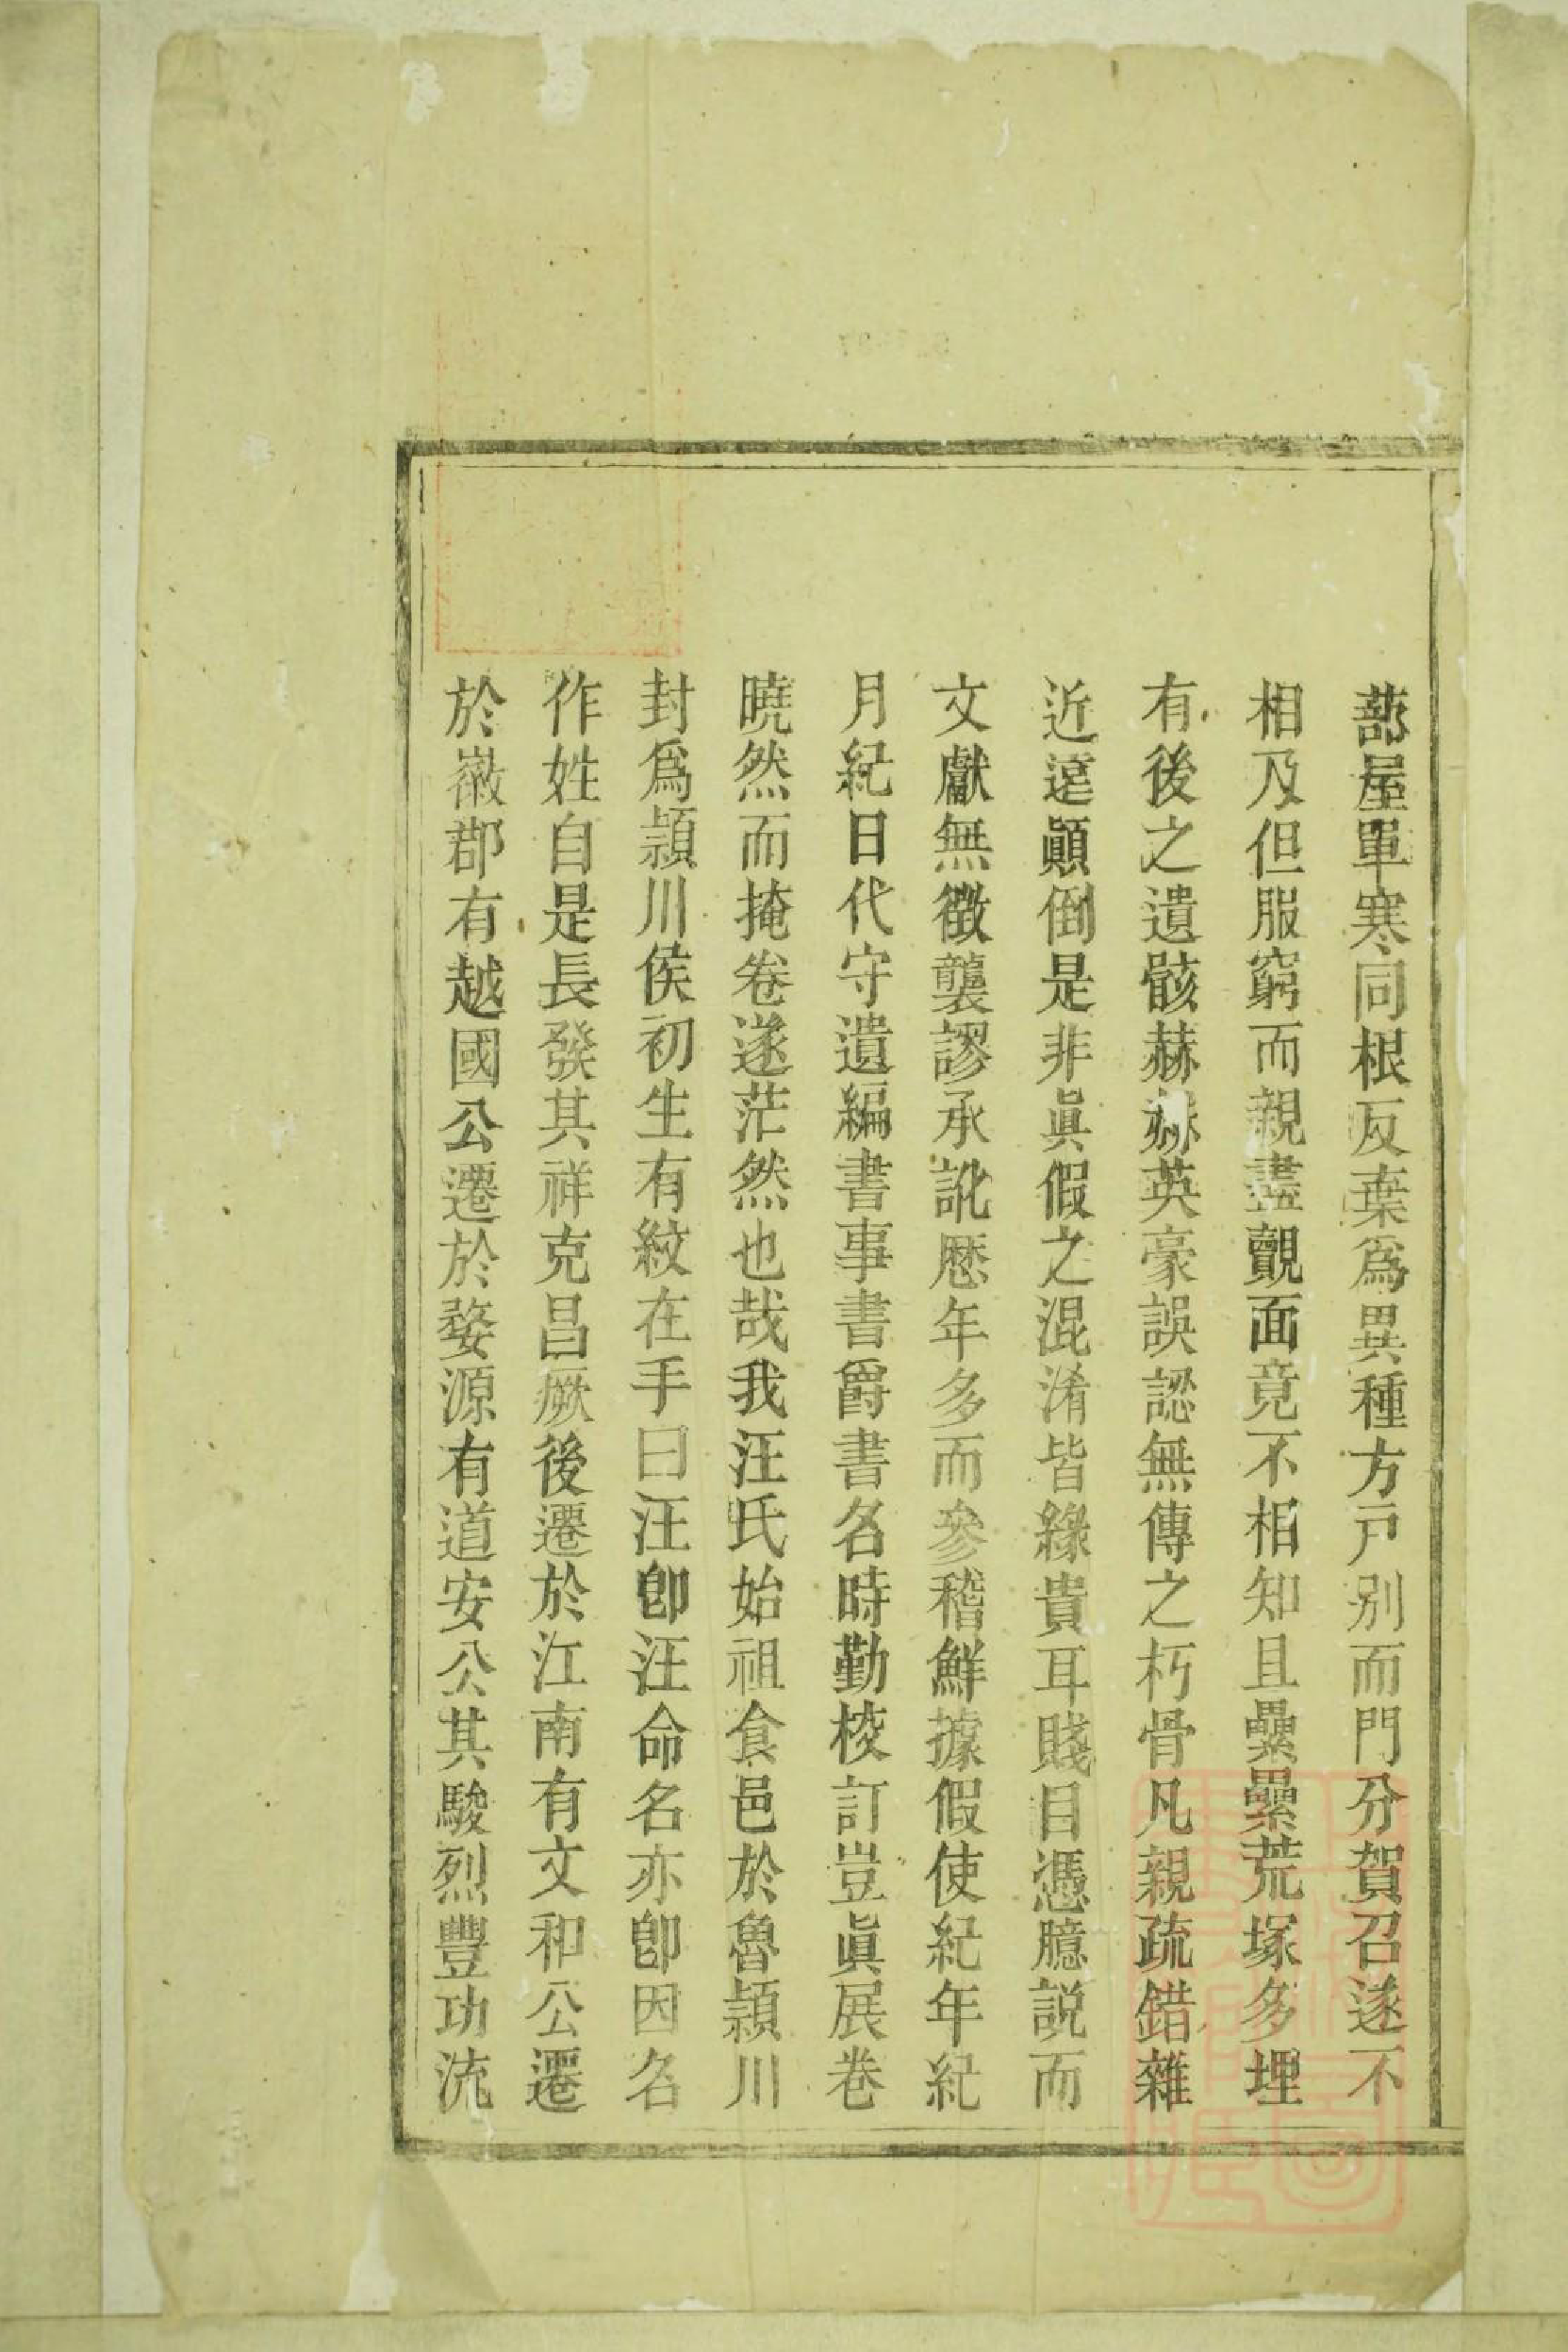 蔀屋單寒同根反葉爲異種方戸别而門分賀召遂不
相及但服窮而親盡覿面竟不相知且纍纍荒塚多埋
有後之遺骸赫赫英豪誤認無傳之朽骨凡親疏錯雜
近遠顚倒是非眞假之混淆皆緣貴耳賤目憑臆説而
文獻無徵襲謬承訛歷年多而參稽鮮據假使紀年紀
月紀日代守遺編書事書爵書名時勤校訂豈眞展巻
曉然而掩卷遂茫然也哉我汪氏始祖食邑於魯潁川
封爲潁川侯初生有紋在手曰汪卽汪命名亦卽因名
作姓自是長發其祥克昌厥後遷於江南有文和公遷
於徽郡有越國公遷於婺源有道安公其駿烈豐功流